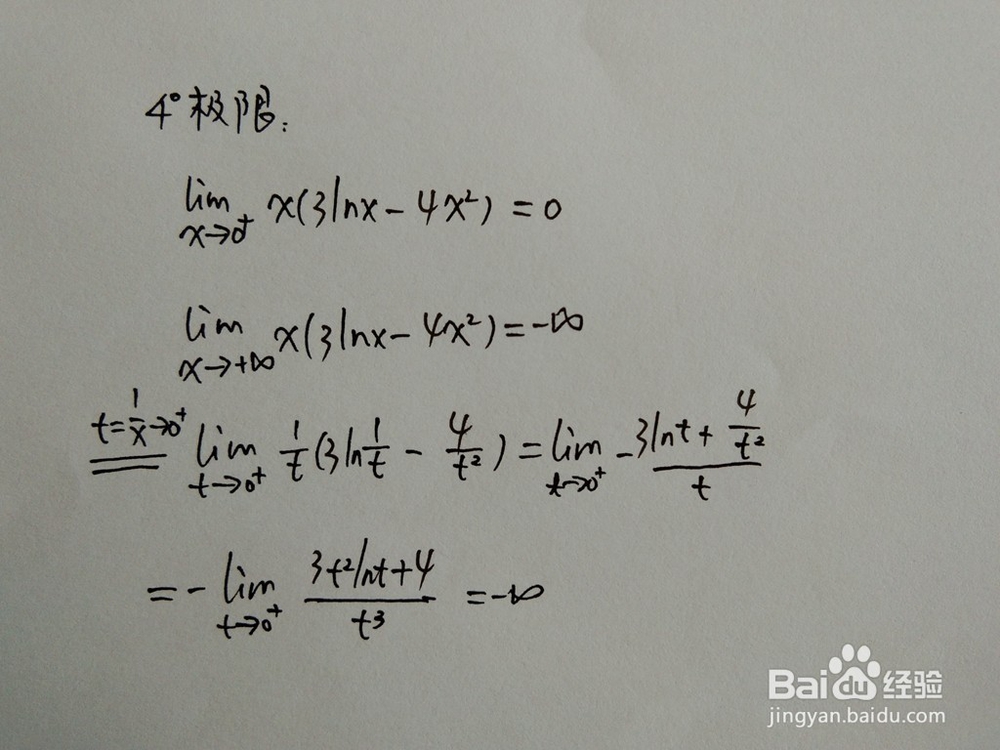 4°极限:
lim x→0⁺ x(3lnx-4x²)=0
lim x→+∞ x(3lnx-4x²)=-∞
t=1/x→0⁺ lim t→0⁺ 1/t(3ln1/t - 4/t²)=lim t→0⁺ -(3lnt+4/t²)/t
=-lim t→0⁺ (3t²lnt+4)/t³ =-∞
Baidu经验
jingyan.baidu.com